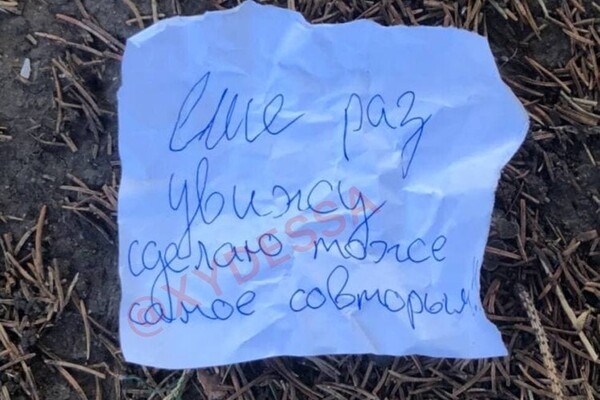 Еще раз
увижу
сделаю тоже
самое совторым!!
@XYDESSA